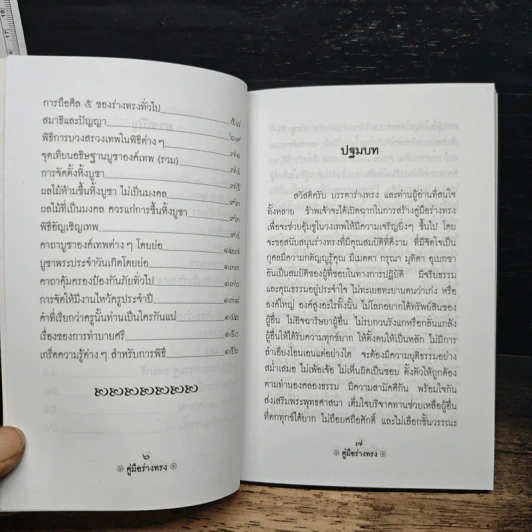 การถือศีล ๕ ของร่างทรงทั่วไป ๕๘
สมาธิและปัญญา ๖๙
พิธีการบวงสรวงเทพในพิธีต่างๆ ๗๑
ชุดเทียนอธิษฐานบูชาองค์เทพ (รวม) ๗๔
การจัดตั้งหิ้งบูชา ๗๕
ผลไม้ห้ามขึ้นหิ้งบูชา ไม่เป็นมงคล ๙๓
ผลไม้ที่เป็นมงคล ควรแก่การขึ้นหิ้งบูชา ๙๓
พิธีอัญเชิญเทพ ๙๔
คาถาบูชาองค์เทพต่างๆ โดยย่อ ๑๒๗
บูชาพระประจำวันเกิดโดยย่อ ๑๓๐
คาถาคุ้มครองป้องกันภัยทั่วไป ๑๓๔
การจัดให้มีงานไหว้ครูประจำปี ๑๓๘
คำที่เรียกว่าครูนั้นท่านเป็นใครกันแน่ ๑๔๐
เรื่องของการทำบายศรี ๑๕๐
เกร็ดความรู้ต่างๆ สำหรับการพิธี ๑๕๖
๖
คู่มือร่างทรง
ปฐมบท
สวัสดีครับ บรรดาร่างทรง และท่านผู้อ่านที่สนใจ
ทั้งหลาย ข้าพเจ้าจะได้เปิดฉากในการสร้างคู่มือร่างทรง
เพื่อจะช่วยอุ้มชูในวงเทพให้มีความเจริญยิ่งๆ ขึ้นไป โดย
จะขอสนับสนุนร่างทรงที่มีคุณสมบัติที่ดีงาม ที่มีจิตใจเป็น
กุศลมีความกตัญญูรู้คุณ มีเมตตา กรุณา มุทิตา อุเบกขา
อันเป็นสมบัติของผู้ที่ชอบในทางการปฏิบัติ มีจริยธรรม
และคุณธรรมอยู่ประจำใจ ไม่ทะเยอทะยานตนว่าเก่ง หรือ
องค์ใหญ่ องค์สูงอะไรทั้งนั้น ไม่โลภอยากได้ทรัพย์สินของ
ผู้อื่น ไม่อิจฉาริษยาผู้อื่น ไม่รบกวนรังแกหรือกลั่นแกล้ง
ผู้อื่นให้ได้รับความทุกข์ยาก ให้ตั้งตนให้เป็นหลัก ไม่มีการ
ลำเอียงโอนเอนแต่อย่างใด จะต้องมีความยุติธรรมอย่าง
สม่ำเสมอ ไม่เพ้อเจ้อ ไม่เห็นผิดเป็นชอบ ตั้งตัวให้ถูกต้อง
ตามทำนองคลองธรรม มีความสามัคคีกัน พร้อมใจกัน
ส่งเสริมพระพุทธศาสนา เต็มใจบริจาคทานช่วยเหลือผู้อื่น
ที่ตกทุกข์ได้ยาก ไม่ถือยศถือศักดิ์ และไม่เลือกชั้นวรรณะ
๗
คู่มือร่างทรง